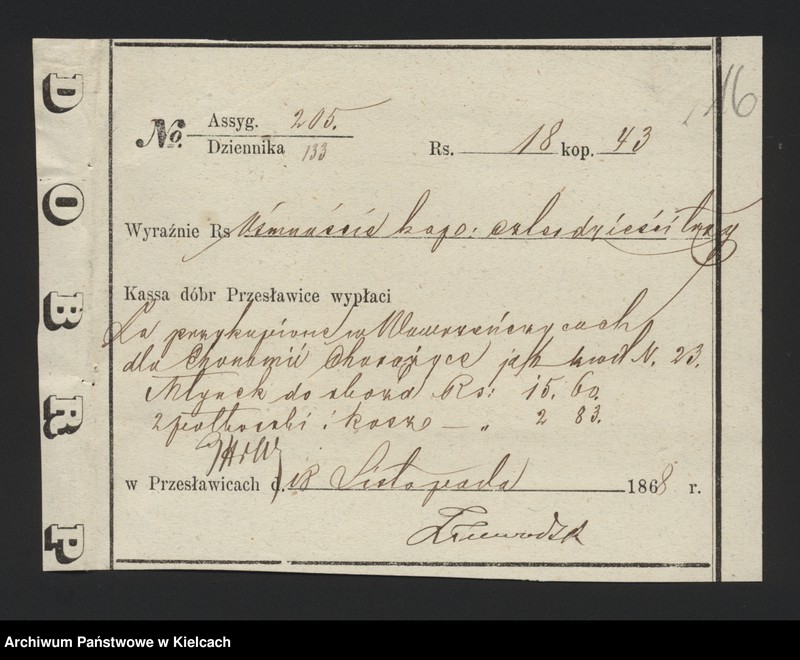 DOBR P
116
No. Assyg. 205.
Dziennika 133
Rs. 18 kop. 43
Wyraźnie Rs Ośmnaście kop: czterdzieści trzy
Kassa dóbr Przesławice wypłaci
Za przykupione w Wawrzeńczycach
dla Ekonomii Chorążyce jak kwit N. 23.
Młynek do zboża Rs: 15. 60.
2 półkoszki i kosze — „ 2 83.
w Przesławicach d. 18 Listopada 1868 r.